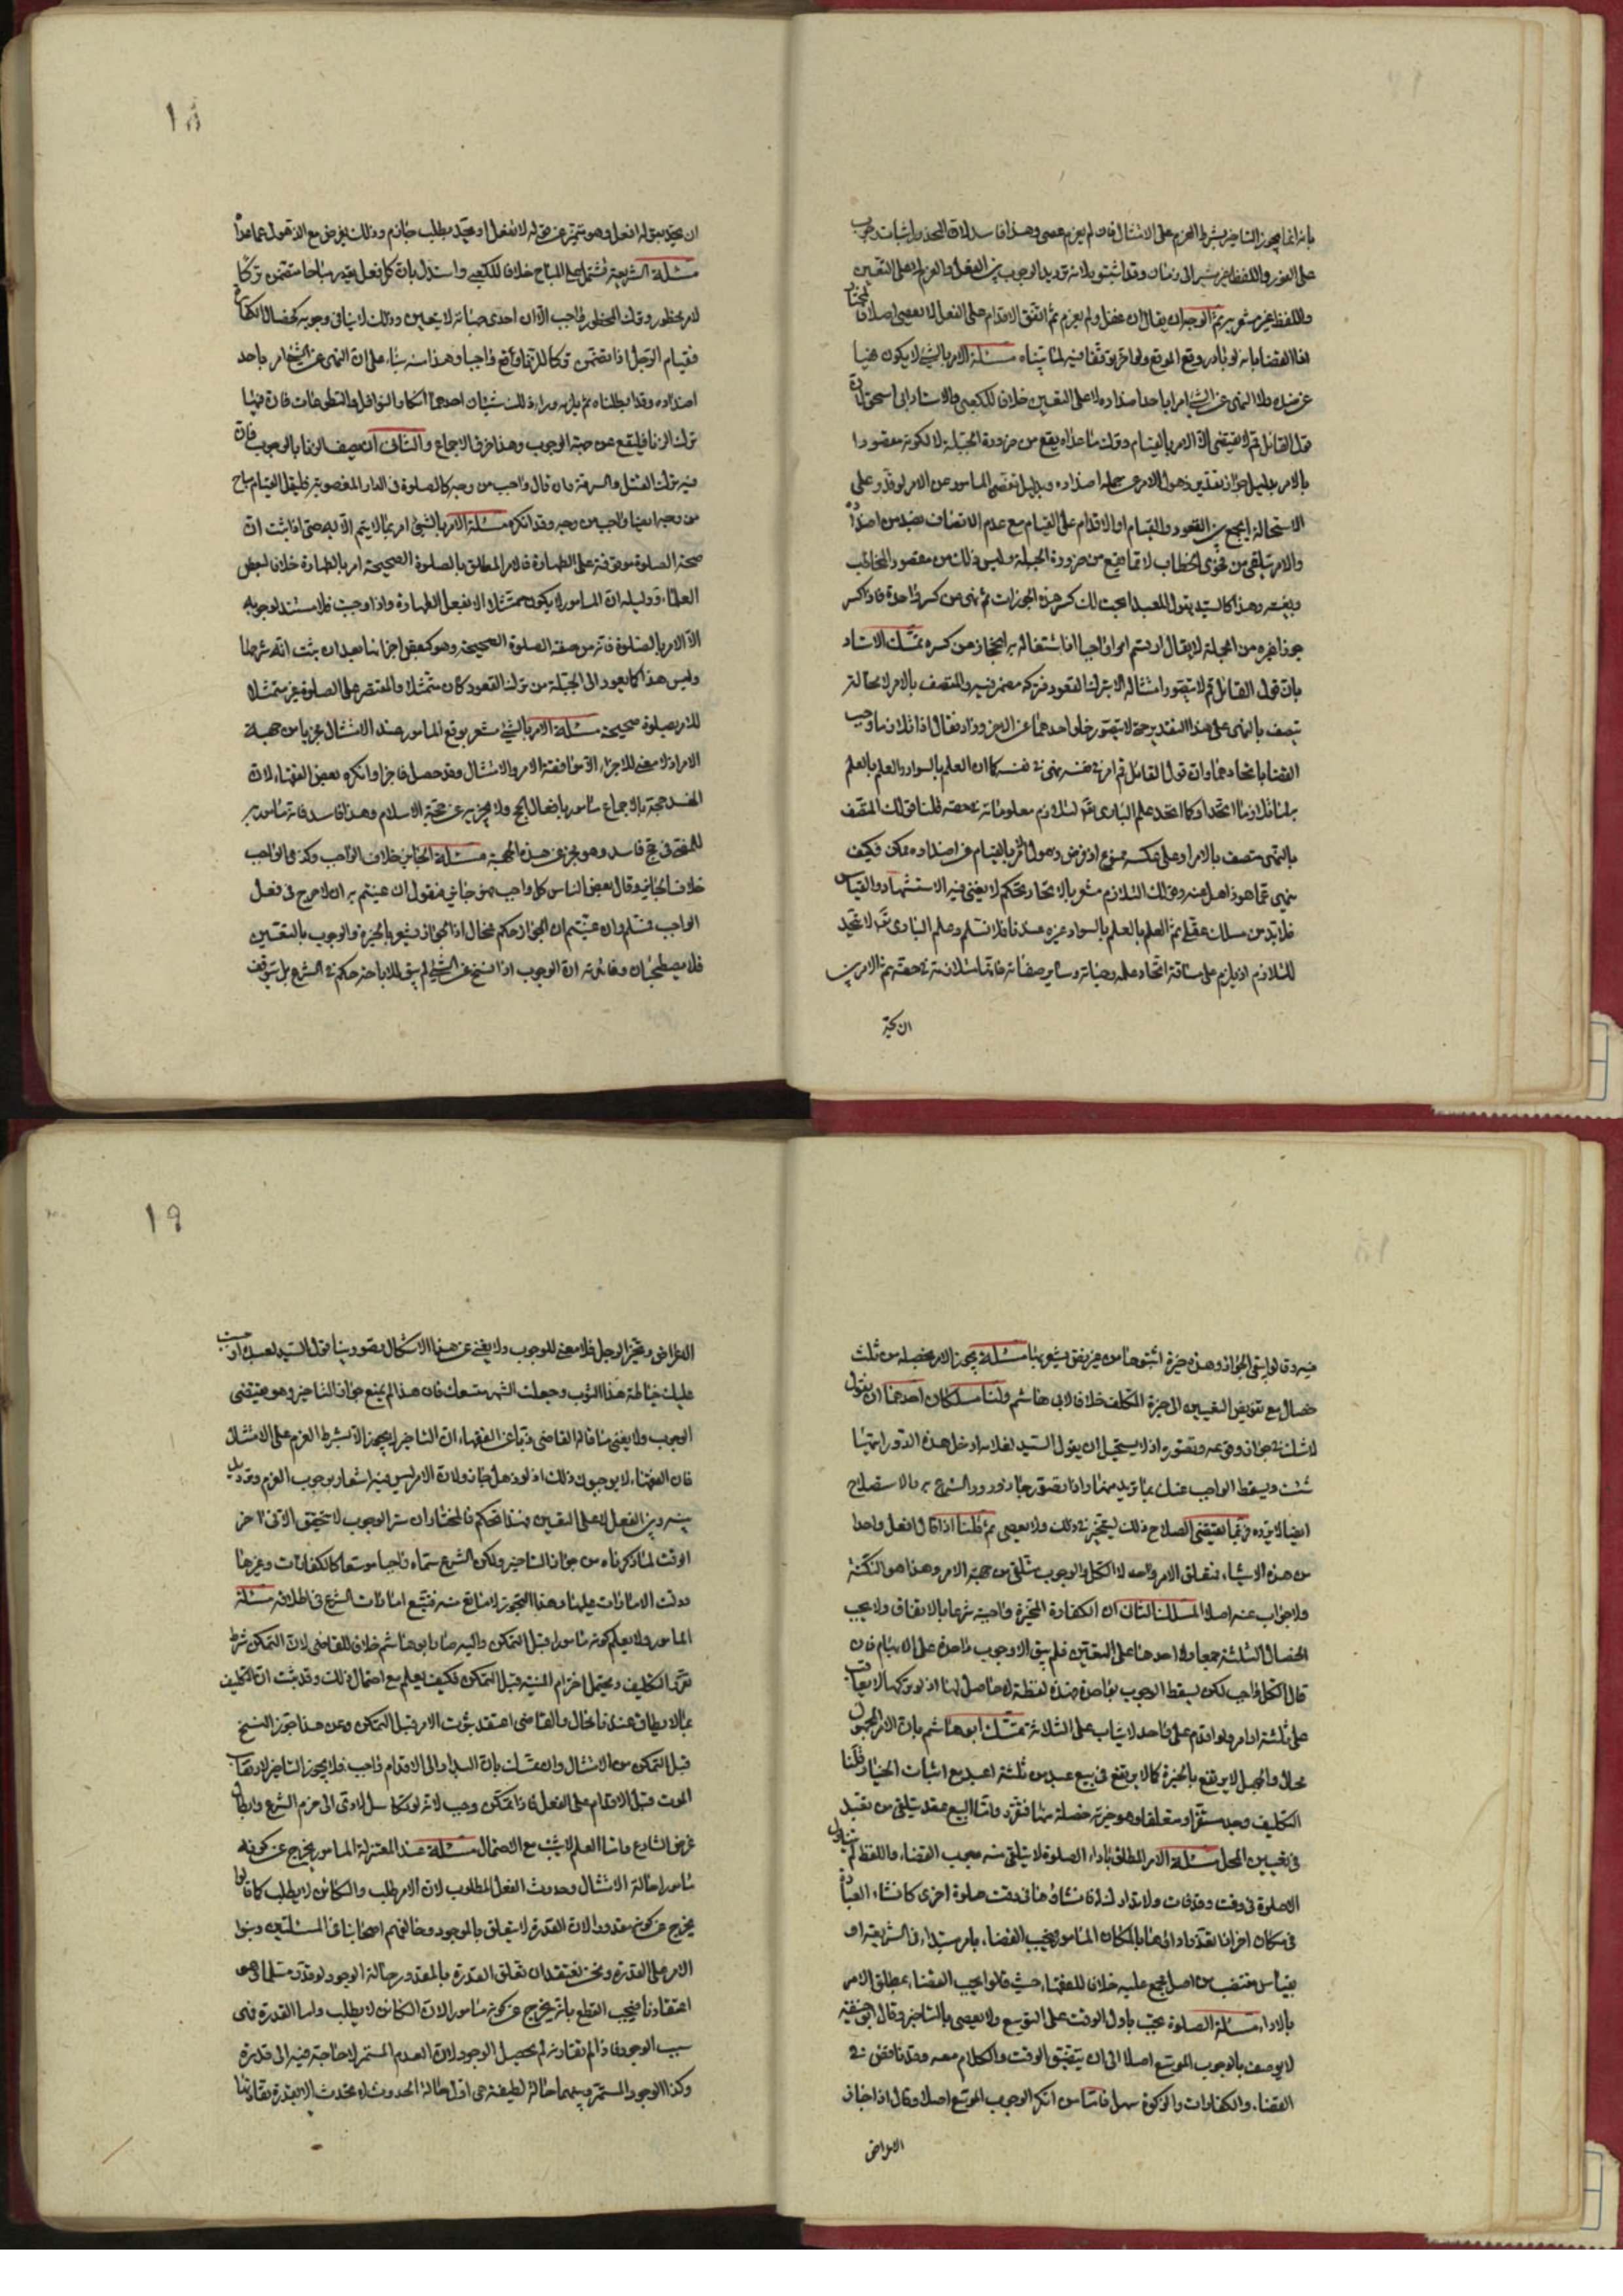 بانه انما يجوز التاخير بشرط العزم على الامتثال فان لم يعزم عصى وهذا فاسد لان التحذ واثبات وجوب
على الفور واللفظ غير مشير الى زمان وقد اثبتوا بلا ترديد الوجوب بين الفعل والعزم لا على التعيين
واللفظ غير مشعر به ثم الوجه ان يقال ان غفل ولم يعزم ثم اتفق الاقدام على الفعل لا يعصى اصلا والمختار
انا القضا بانه لو بادر وقع الموقع ولو اخر يتوقف فيه لما بيناه مسئلة الامر بالشئ لا يكون نهيا
عن ضده ولا النهى عن الشئ امرا باحد اضداده لا على التعيين خلافا للكعبى والاستاد ابى اسحق لان
قول القائل قم لا يقتضى الا الامر بالقيام وترك ما عداه يقع من ضرورة الجبلة لا لكونه مقصودا
بالامر بدليل جواز تقدير ذهول الامر عن جملة اضداده وبدليل تقصى المامور عن الامر لو قدر على
الاستحالة الجمع بين القعود والقيام او الاقدام على القيام مع عدم الاتصاف بضد من اضداده
والامر يتلقى من فحوى الخطاب لا مما يقع من ضرورة الجبلة وليس ذلك من مقصود المخاطب
وبغيته وهذا كالسيد يقول للعبد ابحت لك كسر هذه الجوزات ثم نهى من كسر واحدة فاذا كسر
جوزا غيره من الجملة لا يقال ارتسم امرا واجبا اذ اشتغاله به انحجاز من كسره تمسك الاستاد
بان قول القائل قم لا يتصور امتثاله الا بترك القعود فتركه مضمر فيه والمتصف بالامر لا محالة
يتصف بالنهى على هذا التقدير حتى لا يتصور خلو احدهما عن الاخر وزاد فقال اذا تلازما وجب
القضا باتحادهما وان قول القائل قم امر فى نفسه نهى فى نفسه كما ان العلم بالسواد والعلم بالعلم
به لما تلازما اتحدا وكما اتحد علم البارى تع لتلازم معلوماته فى حقه قلنا قولك المتصف
بالنهى متصف بالامر وعلى عكسه ممنوع اذ نفرض ذهول الامر بالقيام عن اضداده ممكن فكيف
ينهى عما هو ذاهل عنه وقولك التلازم مشعر بالاتحاد تحكم لا يغنى فيه الاستشهاد والقياس
فلا بد من مسلك عقلى ثم العلم بالعلم بالسواد غيره عندنا فلا نسلم وعلم البارى تع لا يتحد
للتلازم اذ يلزم على مساقه اتحاد علمه وحياته وسائر صفاته فانها متلازمة فى حقه ثم الامر بين
ان يحد
١٨
ان يحد بقوله افعل وهو متميز عن قوله لا تفعل او يحد بطلب جازم وذلك يفرض مع الذهول عما عداه
مسئلة الشريعة تشتمل على المباح خلافا للكعبى واستدل بان كل فعل يقدر مباحا متضمن تركا
لامر محظور وترك المحظور واجب الا ان احدى جهاته لا يتعين وذلك لا ينافى وجوبه كخصال الكفارة
فقيام الرجل اذا تضمن تركا للزنا وقع واجبا وهذا منه بناء على ان النهى عن الشئ امر باحد
اضداده وقد ابطلناه ثم يلزمه وراء ذلك شيئان احدهما انكار النوافل والتطوعات فان فيها
ترك الزنا فليقع عن جهة الوجوب وهذا خرق الاجماع والثانى ان يصف الزنا بالوجوب فان
فيه ترك القتل والسرقة فان قال واجب من وجه كالصلوة فى الدار المغصوبة فليقل القيام مباح
من وجه ايضا واجب من وجه وقد انكره مسئلة الامر بالشئ امر بما لا يتم الا به حتى اذا ثبت ان
صحة الصلوة موقوفة على الطهارة فالامر المطلق بالصلوة الصحيحة امر بالطهارة خلافا لبعض
العلماء ودليله ان المامور لا يكون ممتثلا الا بفعل الطهارة واذا وجبت فلا مستند لوجوبه
الا الامر بالصلوة فانه من صفة الصلوة الصحيحة وهو كبعض اجزائها بعد ان يثبت انه شرطها
وليس هذا كما يعود الى الجبلة من ترك القعود كان متمثلا والمقتصر على الصلوة غير متمثل
للامر بصلوة صحيحة مسئلة الامر بالشئ مشعر بوقوع المامور عند الامتثال مجزيا من جهة
الامر اذ لا معنى للاجزاء الا موافقة الامر والامتثال وقد حصل فاجزا وانكره بعض الفقهاء لان
المفسد حجه بالاجماع مامور بافعال الحج ولا يجزيه عن حجة الاسلام وهذا فاسد فانه مامور به
للمضى فى حج فاسد وهو مجز عن هذه الجهة مسئلة الجائز خلاف الواجب وكذا الواجب
خلاف الجائز وقال بعض الناس كل واجب فهو جائز فنقول ان عنيتم به ان لا حرج فى فعل
الواجب فمسلم وان عنيتم ان الجواز حكم فمحال اذ الجواز يشعر بالخيرة والوجوب بالتعيين
فلا يصطحبان وفائدته ان الوجوب اذا نسخ عن الشئ لم يبق للاباحة حكم فى الشرع بل يتوقف
فيه وقالوا بقى الجواز وهذه خيرة اثبتوها من غير نص يشعر بها مسئلة يجوز الامر بخصلة من ثلث
خصال مع تفويض التعيين الى خيرة المكلف خلافا لابى هاشم ولنا مسلكان احدهما ان نقول
لا شك فى جواز وقوعه وتصوره اذ لا يستحيل ان يقول السيد لغلامه ادخل هذه الدور ايتها
شئت ويسقط الواجب عنك بما تريد منها واذا تصور جاز ورود الشرع به والاستصلاح
ايضا لا يرده فربما يقتضى الصلاح ذلك ليتخير فى ذلك ولا يعصى ثم قلنا اذا قال افعل واحدا
من هذه الاشياء فتعلق الامر واحد لا الكل والوجوب متلقى من جهة الامر وهذا هو النكتة
ولا جواب عنه اصلا المسلك الثانى ان الكفارة المخيرة واجبة شرعا بالاتفاق ولا يجب
الخصال الثلثة جمعا ولا احدها على التعيين فلم يبق الا وجوب واحدة على الابهام فان
قالوا الكل واجب لكن يسقط الوجوب بواحدة فهذه لفظة لا حاصل لها اذ لو تركها لا يعاقب
على ثلثة اوامر ولو اقدم على واحد لا يثاب على الثلاثة تمسك ابو هاشم بان الامر المجهول
محال والجهل لا يرتفع بالخيرة كما لا يرتفع فى بيع عبد من ثلثة اعبد مع اثبات الخيار قلنا
التكليف وجد مستقرا ومتعلقا وهو خيرته خصلة منها فتقرر واما البيع بعقد يتلقى من تعبد
فى تعيين المحل مسئلة الامر المطلق باداء الصلوة لا يتلقى منه موجب القضاء واللفظ لم يتناول
الا صلوة فى وقت وقد فات ولا تدارك له فان انشاؤها فى وقت صلوة اخرى كانشاء العبادة
فى مكان اخر اذا تعذر ادائها بالمكان المامور فيجب القضاء بامر مبتداء فى الشريعة او
بقياس مقتضب من اصل مجمع عليه خلافا للفقهاء حيث قالوا يجب القضاء بمطلق الامر
بالاداء مسئلة الصلوة يجب باول الوقت على التوسع ولا يعصى بالتاخير وقال ابو حنيفة
لا يوصف بالوجوب الموسع اصلا الى ان يتضيق الوقت والكلام معه وقد ناقض فى
القضاء والكفارات والزكوة سهل فاما من انكر الوجوب الموسع اصلا وقال اذا جاز
الاعراض
١٩
الاعراض وتخير الرجل فلا معنى للوجوب ولا يغنى عن هذا الاشكال تصويرنا قول السيد لعبده اوجبت
عليك خياطة هذا الثوب وجعلت الشهر متسعك فان هذا لم يمنع جواز التاخير وهو يقتضى
الوجوب ولا يغنى ما قاله القاضى ذبا عن الفقهاء ان التاخير لا يجوز الا بشرط العزم على الامتثال
فان الفقهاء لا يوجبون ذلك اذ لو ذهل جاز ولان الامر ليس فيه اشعار بوجوب العزم وترديد
بينه وبين الفعل لا على التعيين فهذا تحكم فالمختار ان سر الوجوب لا يتحقق الا فى اخر
الوقت لما ذكرناه من جواز التاخير ولكن الشرع سماه واجبا موسعا كالكفارات وغيرها
ودلت الامارات عليها وهذا التجوز لا مانع منه فنتبع امارات الشرع فى اطلاقه مسئلة
المامور لا يعلم كونه مامورا قبل التمكن واليه صار ابو هاشم خلافا للقاضى لان التمكن شرط
تعرى التكليف ويحتمل اخترام المنية قبل التمكن فكيف يعلم مع احتمال ذلك وقد ثبت ان التكليف
بما لا يطاق عندنا محال والقاضى اعتقد ثبوت الامر قبل التمكن وعن هذا جوز النسخ
قبل التمكن من الامتثال وان تمسك بان البدار الى الاقدام واجب فلا يجوز التاخير لارتقاب
الموت قبل الاقدام على الفعل فاذا تمكن وجب لانه لو تكاسل لادى الى خرم الشرع وابطال
غرض الشارع واما العلم لا يثبت مع الاحتمال مسئلة عند المعتزلة المامور يخرج عن كونه
مامورا حالة الامتثال وحدوث الفعل المطلوب لان الامر طلب والكائن لا يطلب كما قالوا
يخرج عن كونه مقدورا لان القدرة لا يتعلق بالموجود وخالفهم اصحابنا فى المسئلتين وبنوا
الامر على القدرة ونحن نعتقد ان تعلق القدرة بالمقدور حالة الوجود لو قدر مسلما وهو
اعتقادنا فيجب القطع بانه يخرج عن كونه مامورا لان الكائن لا يطلب واما القدرة فهى
سبب الوجود فاذا لم تقارنه لم يحصل الوجود لان العدم المستمر لا حاجة فيه الى قدرة
وكذا الوجود المستمر وبينهما حالة لطيفة هى اول حالة الحدوث فلا تحدث الا بقدرة تقارنها